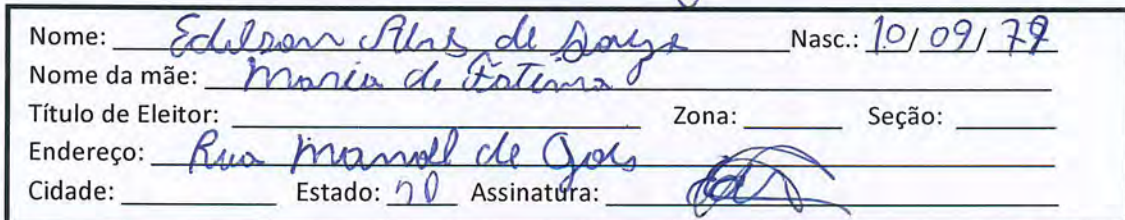 Nome: Edilson Alves de Souza Nasc.: 10/09/79
Nome da mãe: Maria de Fatima
Título de Eleitor: Zona: Seção:
Endereço: Rua Manoel de Gois
Cidade: Estado: Assinatura: